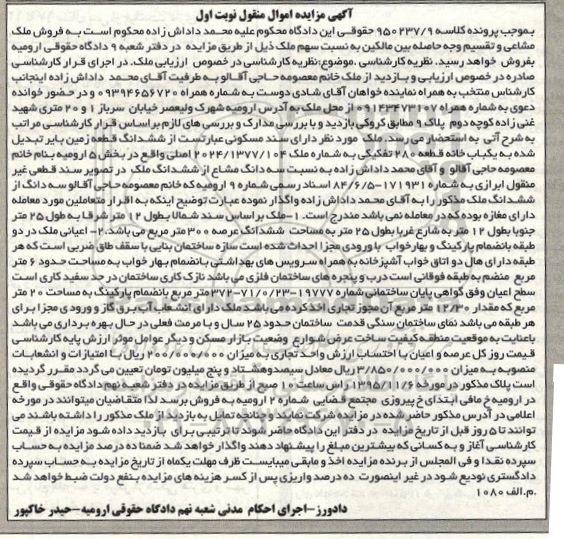 آگهی مزایده اموال منقول نوبت اول
بموجب پرونده کلاسه ۹۵۰۲۳۷/۹ حقوقی این دادگاه محکوم علیه محمد داداش زاده محکوم است به فروش ملک
مشاعی و تقسیم وجه حاصله بین مالکین به نسبت سهم ملک ذیل از طریق مزایده در دفتر شعبه ۹ دادگاه حقوقی ارومیه
بفروش خواهد رسید. نظریه کارشناسی .موضوع:نظریه کارشناسی در خصوص ارزیابی ملک. در اجرای قرار کارشناسی
صادره در خصوص ارزیابی و بازدید از ملک خانم معصومه حاجی آقالو به طرفیت آقای محمد داداش زاده اینجانب
کارشناس منتخب به همراه نماینده خواهان آقای شادی دوست به شماره همراه ۰۹۳۹۴۶۵۶۷۲۰ و در حضور خوانده
دعوی به شماره همراه ۰۹۱۴۳۴۷۳۱۰۷ از محل ملک به آدرس ارومیه شهرک ولیعصر خیابان سرباز ۱ و ۲۰ متری شهید
غنی زاده کوچه دوم پلاک ۹ مطابق کروکی بازدید و با بررسی مدارک و بررسی های لازم براساس قرار کارشناسی مراتب
به شرح آتی به استحضار می رسد. ملک مورد نظر دارای سند مسکونی عبارتست از ششدانگ قطعه زمین بایر تبدیل
شده به یکباب خانه قطعه ۲۸۰ تفکیکی به شماره ملک ۲۰۲۴/۱۳۷۷/۱۰۴ اصلی واقع در بخش ۵ ارومیه بنام خانم
معصومه حاجی آقالو و آقای محمد داداش زاده به نسبت سه دانگ مشاع از ششدانگ ملک در تصویر سند قطعی غیر
منقول ابرازی به شماره ۱۷۱۹۳۱-۸۴/۶/۵ اسناد رسمی شماره ۹ ارومیه که خانم معصومه حاجی آقالو سه دانگ از
ششدانگ ملک مذکور را به آقای محمد داداش زاده واگذار نموده عبارت توضیح اینکه به اقرار متعاملین مورد معامله
دارای مغازه بوده که در معامله نمی باشد مندرج است. ۱-ملک براساس سند شمالا بطول ۱۲ متر شرقا به طول ۲۵ متر
جنوبا بطول ۱۲ متر به شارع غربا بطول ۲۵ متر به مساحت ششدانگ عرصه ۳۰۰ متر مربع می باشد.۲- اعیانی ملک در دو
طبقه بانضمام پارکینگ و بهارخواب با ورودی مجزا احداث شده است سازه ساختمان بنایی با سقف طاق ضربی است که هر
طبقه دارای هال دو اتاق خواب آشپزخانه به همراه سرویس های بهداشتی بانضمام بهار خواب به مساحت حدود ۶ متر
مربع منضم به طبقه فوقانی است درب و پنجره های ساختمان فلزی می باشد نازک کاری ساختمان در حد سفید کاری است
سطح اعیان وفق گواهی پایان ساختمانی شماره ۱۹۷۷۷-۷۱/۰۲/۲۳-۳۷۲ متر مربع بانضمام پارکینگ به مساحت ۲۰ متر
مربع که مقدار ۱۲/۳۰ متر مربع آن مجوز تجاری اخذ کرده می باشد ملک دارای انشعاب آب برق گاز و ورودی مجزا برای
هر طبقه می باشد نمای ساختمان سنگی قدمت ساختمان حدود ۲۵ سال و با مرمت فعلی در حال بهره برداری می باشد
باعنایت به موقعیت منطقه کیفیت ساخت عرض شوارع وضعیت بازار مسکن و دیگر عوامل موثر ارزش پایه کارشناسی
قیمت روز کل عرصه و اعیان با احتساب ارزش واحد تجاری به میزان ۲۰۰/۰۰۰/۰۰۰ ریال با امتیازات و انشعابات
منصوبه به میزان ۳/۸۵۰/۰۰۰/۰۰۰ ریال معادل سیصدوهشتاد و پنج میلیون تومان تعیین می گردد مقرر گردیده
است پلاک مذکور در مورخه ۱۳۹۵/۱۱/۶ راس ساعت ۱۰ صبح از طریق مزایده در دفتر شعبه نهم دادگاه حقوقی واقع
در ارومیه خ مافی ابتدای خ پیروزی مجتمع قضایی شماره ۲ ارومیه به فروش برسد لذا متقاضیان میتوانند در مورخه
اعلامی در آدرس مذکور حاضر شده در مزایده شرکت نمایند و چنانچه تمایل به بازدید از ملک مذکور را داشته باشند می
توانند تا ۵ روز قبل از تاریخ مزایده در دفتر این دادگاه حاضر شوند تا ترتیبی برای بازدید داده شود مزایده از قیمت
کارشناسی آغاز و به کسانی که بیشترین مبلغ را پیشنهاد دهند واگذار خواهد شد ضمنا ده درصد مزایده به حساب
سپرده نقدا و فی المجلس از برنده مزایده اخذ و مابقی میبایست ظرف مهلت یکماه از تاریخ مزایده به حساب سپرده
دادگستری تودیع شود در غیر اینصورت ده درصد واریزی پس از کسر هزینه های مزایده بنفع دولت ضبط خواهد شد
.م.الف ۱۰۸۰
دادورز-اجرای احکام مدنی شعبه نهم دادگاه حقوقی ارومیه-حیدر خاکپور